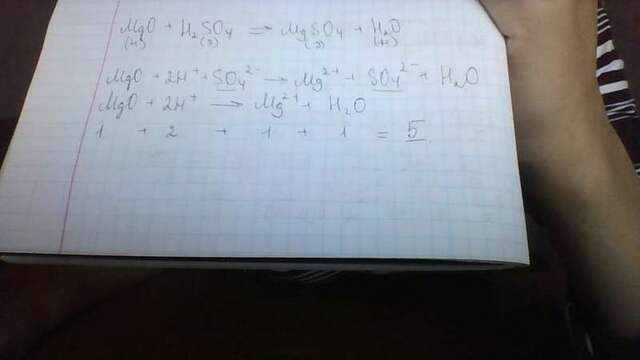 MgO + H₂SO₄ = MgSO₄ + H₂O
(н) (р) (р) (н)
MgO + 2H⁺ + SO₄²⁻ → Mg²⁺ + SO₄²⁻ + H₂O
MgO + 2H⁺ → Mg²⁺ + H₂O
1 + 2 + 1 + 1 = 5